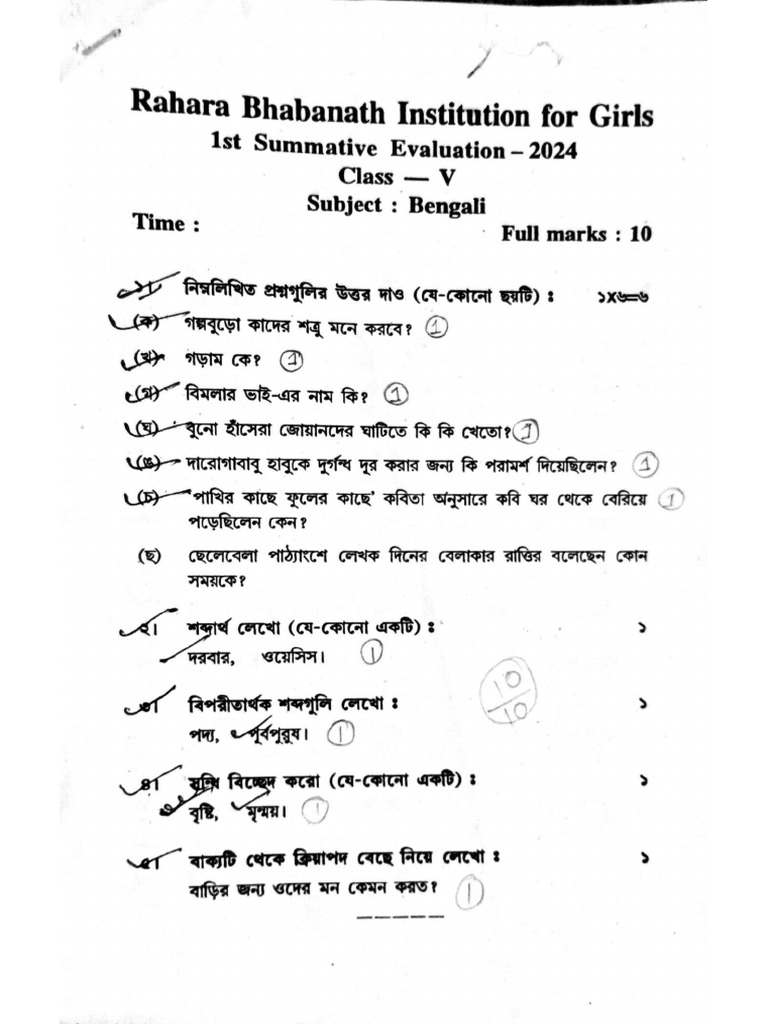 Rahara Bhabanath Institution for Girls
1st Summative Evaluation – 2024
Class — V
Subject : Bengali
Time :
Full marks : 10
১। নিম্নলিখিত প্রশ্নগুলির উত্তর দাও (যে-কোনো ছয়টি) : ১X৬=৬
(ক) গল্পবুড়ো কাদের শত্রু মনে করবে? 1
(খ) গড়াম কে? 1
(গ) বিমলার ভাই-এর নাম কি? 1
(ঘ) বুনো হাঁসেরা জোয়ানদের ঘাটিতে কি কি খেতো? 1
(ঙ) দারোগাবাবু হাবুকে দুর্গন্ধ দূর করার জন্য কি পরামর্শ দিয়েছিলেন? 1
(চ) 'পাখির কাছে ফুলের কাছে' কবিতা অনুসারে কবি ঘর থেকে বেরিয়ে 1
পড়েছিলেন কেন?
(ছ) ছেলেবেলা পাঠ্যাংশে লেখক দিনের বেলাকার রাত্তির বলেছেন কোন
সময়কে?
২। শব্দার্থ লেখো (যে-কোনো একটি) : ১
দরবার, ওয়েসিস। 1
৩। বিপরীতার্থক শব্দগুলি লেখো : ১
পদ্য, পূর্বপুরুষ। 1
10/10
৪। সন্ধি বিচ্ছেদ করো (যে-কোনো একটি) : ১
বৃষ্টি, মৃন্ময়। 1
৫। বাক্যটি থেকে ক্রিয়াপদ বেছে নিয়ে লেখো : ১
বাড়ির জন্য ওদের মন কেমন করত? 1